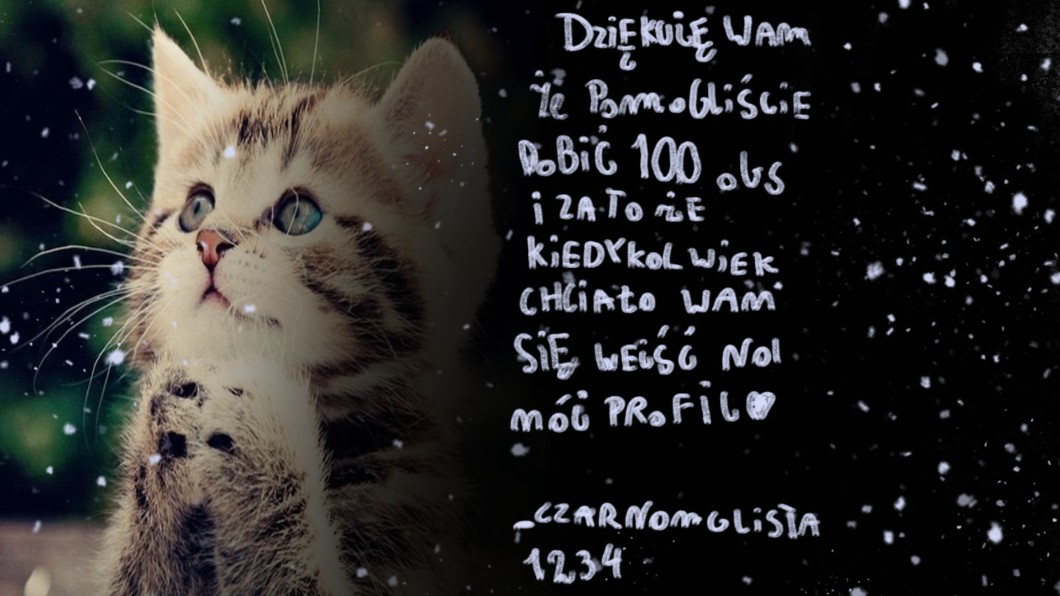 DZIĘKUJĘ WAM
ŻE POMOGLIŚCIE
DOBIĆ 100 obs
i ZA TO ŻE
KIEDYKOLWIEK
CHCIAŁO WAM
SIĘ WEJŚĆ NA
MÓJ PROFIL
_CZARNOMGLISTA
1234